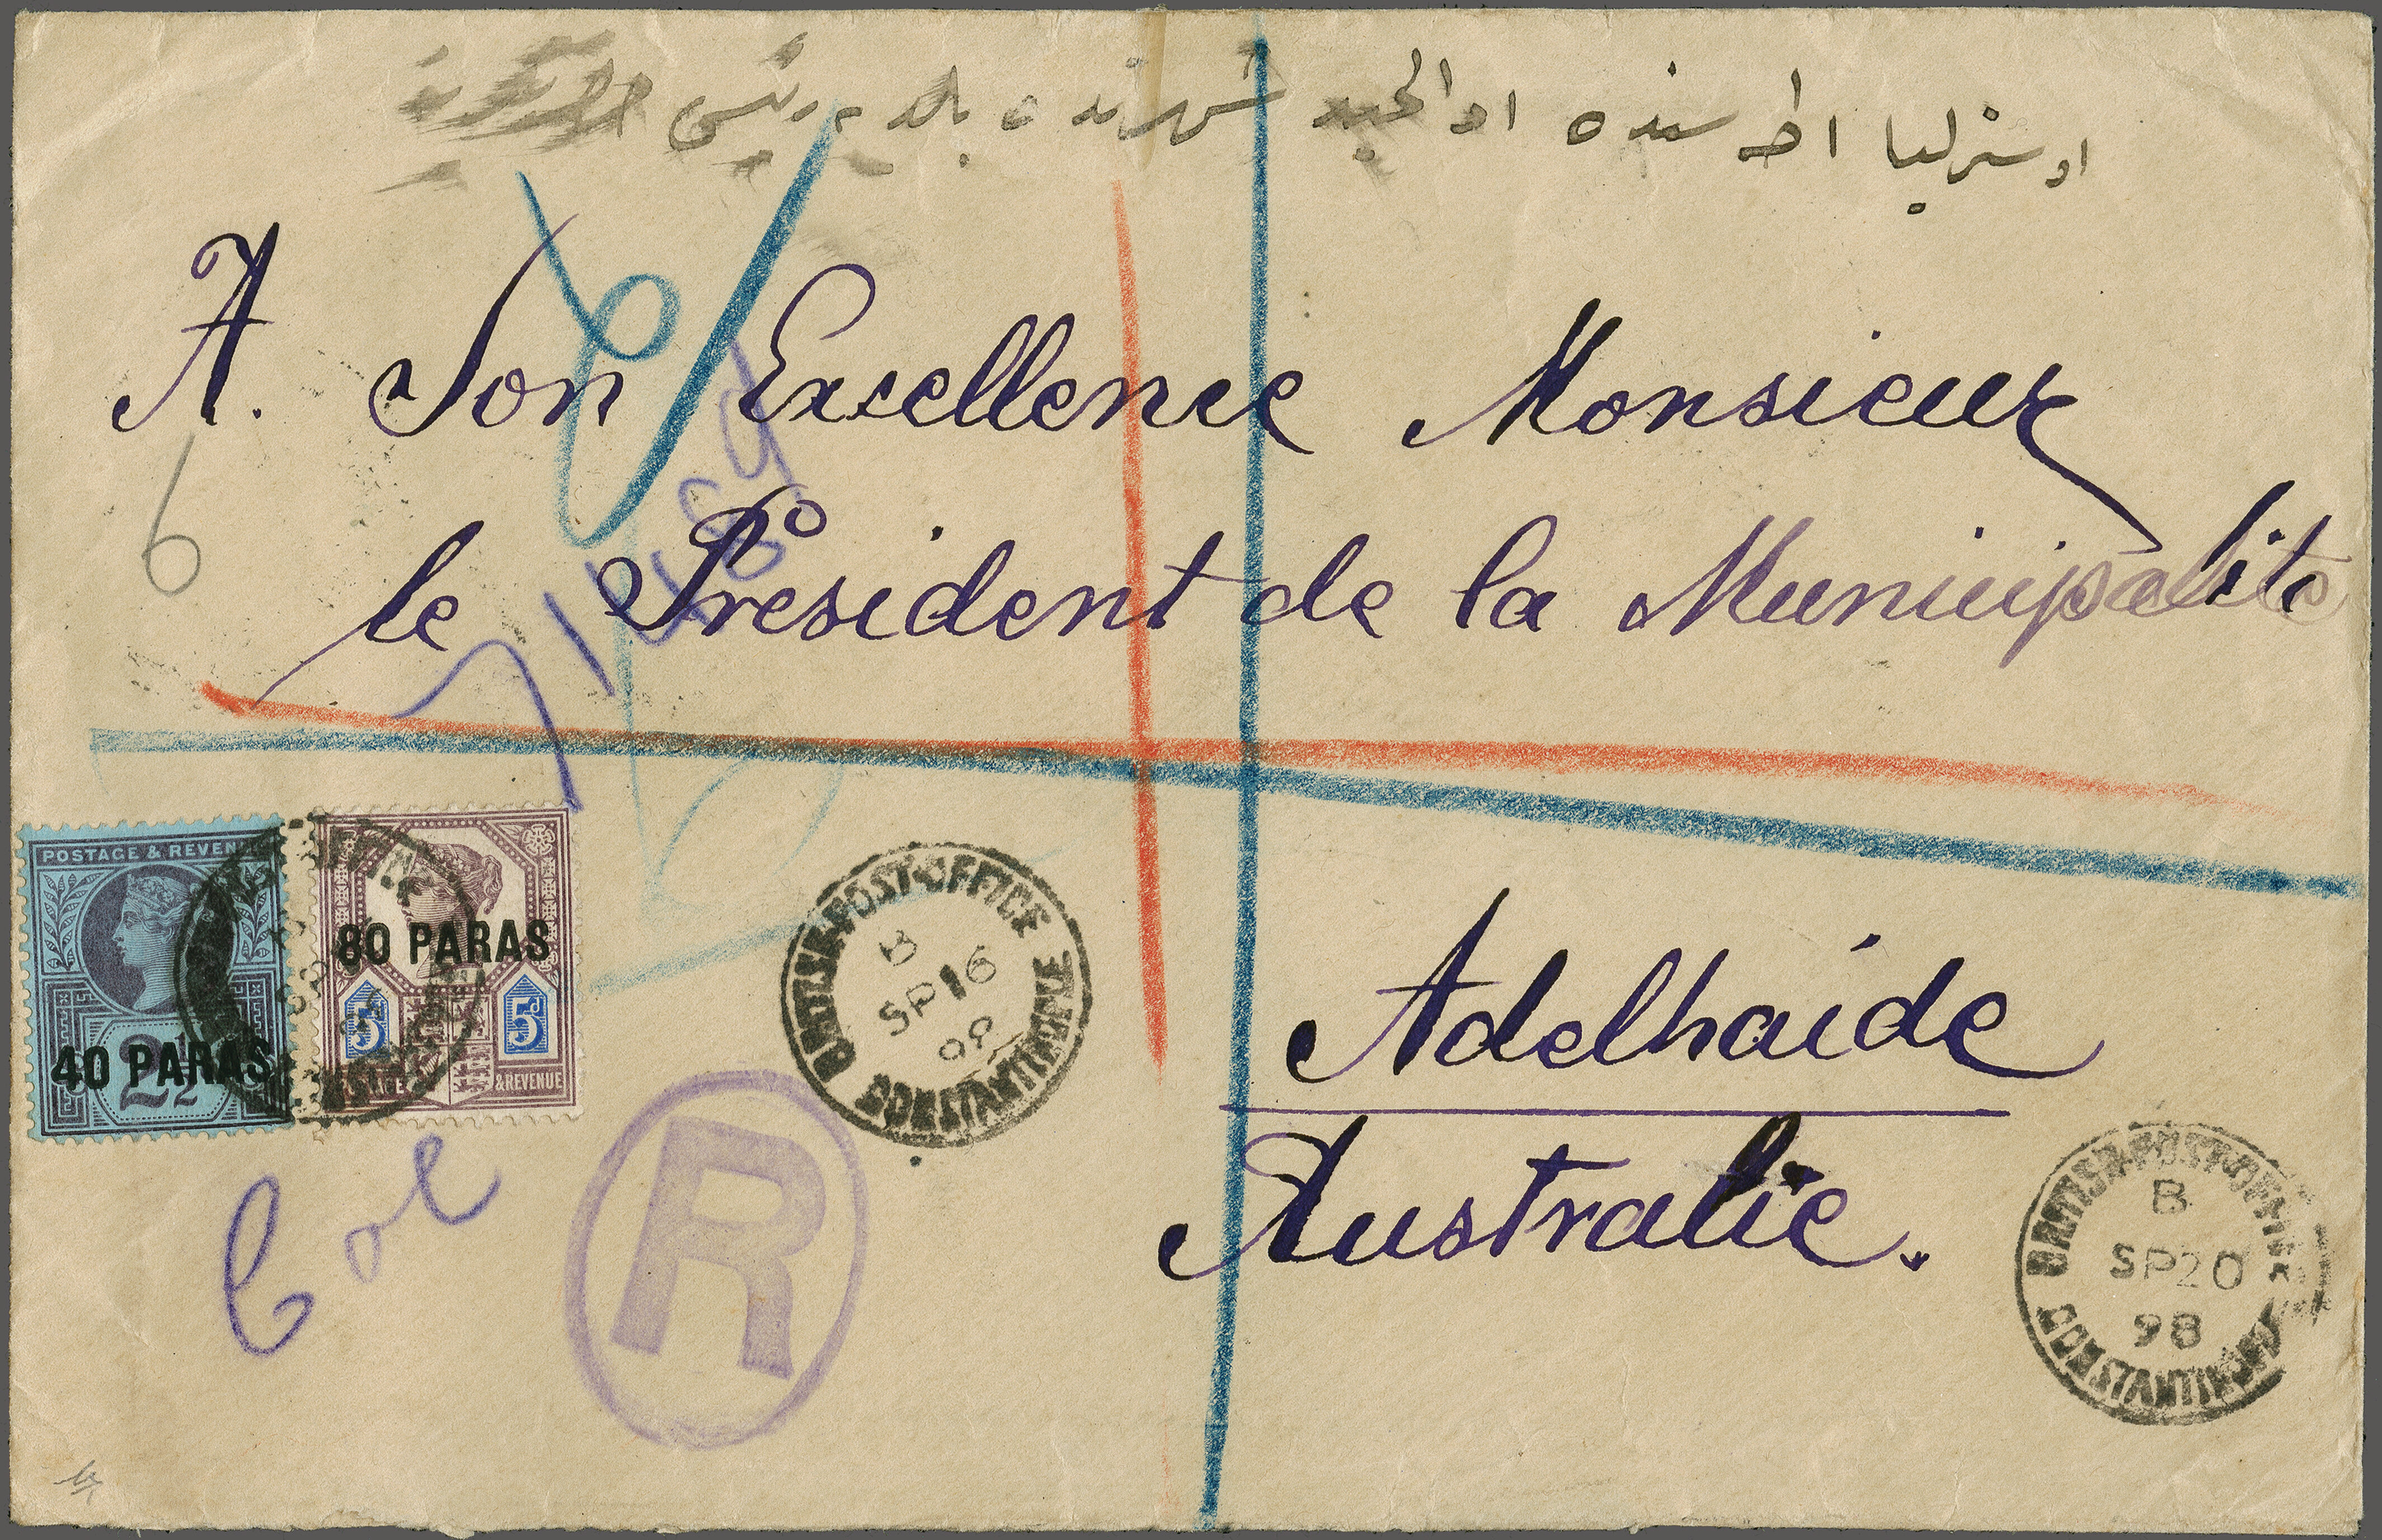 اوسترليا اطه سنده شهرنده بلديه رئيسى
A. Son Excellence Monsieur
le President de la Municipalite
6
71469
POSTAGE & REVENUE
40 PARAS
2½
80 PARAS
5d 5d
POSTAGE & REVENUE
BRITISH POST OFFICE
B
SP 16
98
CONSTANTINOPLE
R
Adelhaide
Australie.
BRITISH POST OFFICE
B
SP 20
98
CONSTANTINOPLE